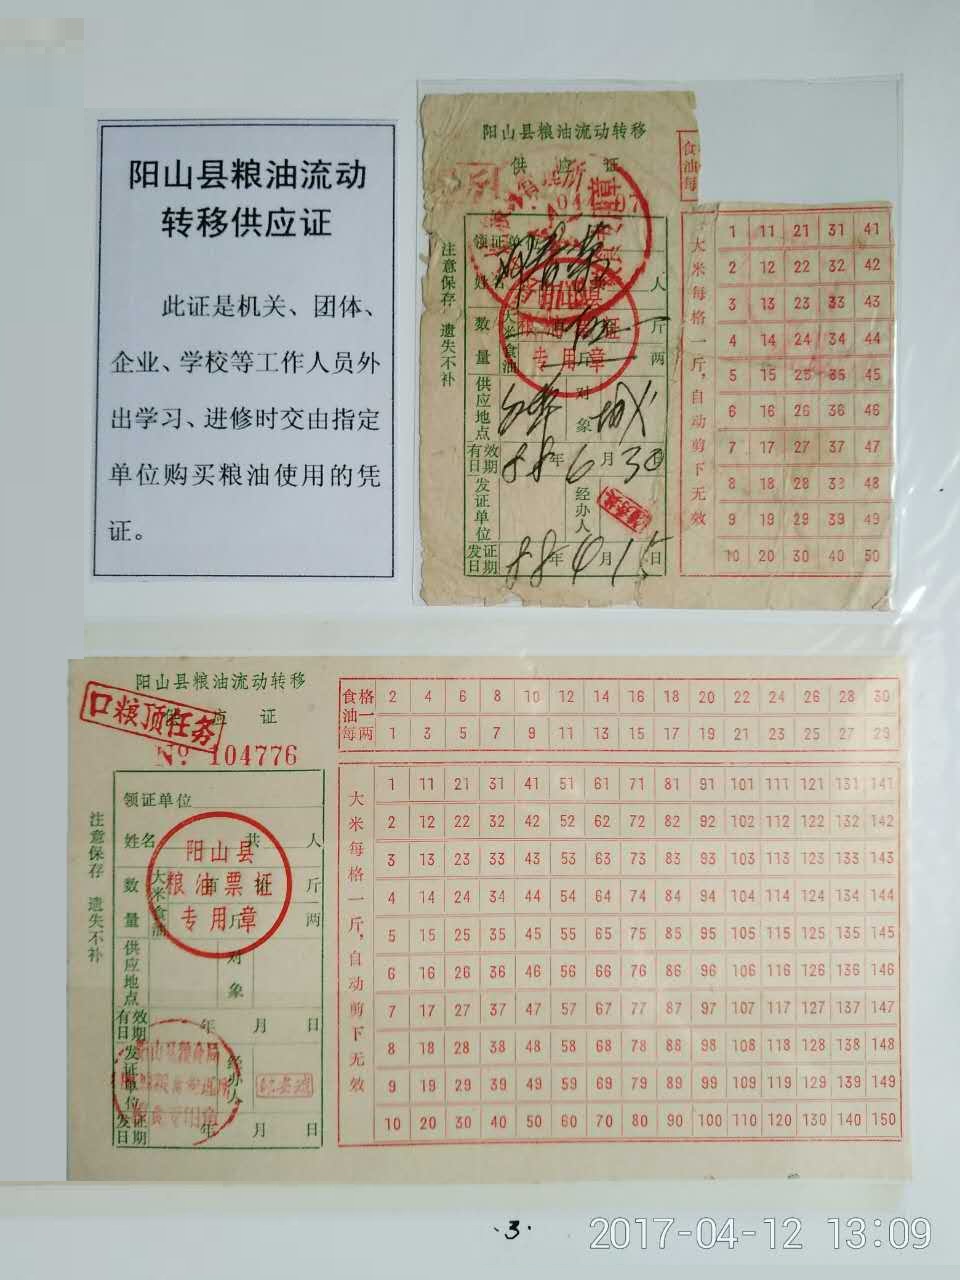 阳山县粮油流动
转移供应证
此证是机关、团体、
企业、学校等工作人员外
出学习、进修时交由指定
单位购买粮油使用的凭
证。
阳山县粮油流动转移
供应证
注意保存 遗失不补
领证单位
姓名 人
数量 大米 伍 斤
食油 斤 两
供应地点 对象
有效日期 88年6月30日
发证单位 经办人
发证日期 88年4月15日
阳山县
粮油票证
专用章
食油每
大米每格一斤，自动剪下无效
1 11 21 31 41
2 12 22 32 42
3 13 23 33 43
4 14 24 34 44
5 15 25 35 45
6 16 26 36 46
7 17 27 37 47
8 18 28 38 48
9 19 29 39 49
10 20 30 40 50
阳山县粮油流动转移
供应证
口粮顶任务
№ 104776
注意保存 遗失不补
领证单位
姓名 共 人
数量 大米 佰 拾 斤
食油 斤 两
供应地点 对象
有效日期 年 月 日
发证单位 经办人
发证日期 年 月 日
阳山县
粮油票证
专用章
阳山县粮食局
食油每格一两
2 4 6 8 10 12 14 16 18 20 22 24 26 28 30
1 3 5 7 9 11 13 15 17 19 21 23 25 27 29
大米每格一斤，自动剪下无效
1 11 21 31 41 51 61 71 81 91 101 111 121 131 141
2 12 22 32 42 52 62 72 82 92 102 112 122 132 142
3 13 23 33 43 53 63 73 83 93 103 113 123 133 143
4 14 24 34 44 54 64 74 84 94 104 114 124 134 144
5 15 25 35 45 55 65 75 85 95 105 115 125 135 145
6 16 26 36 46 56 66 76 86 96 106 116 126 136 146
7 17 27 37 47 57 67 77 87 97 107 117 127 137 147
8 18 28 38 48 58 68 78 88 98 108 118 128 138 148
9 19 29 39 49 59 69 79 89 99 109 119 129 139 149
10 20 30 40 50 60 70 80 90 100 110 120 130 140 150
·3·
2017-04-12 13:09